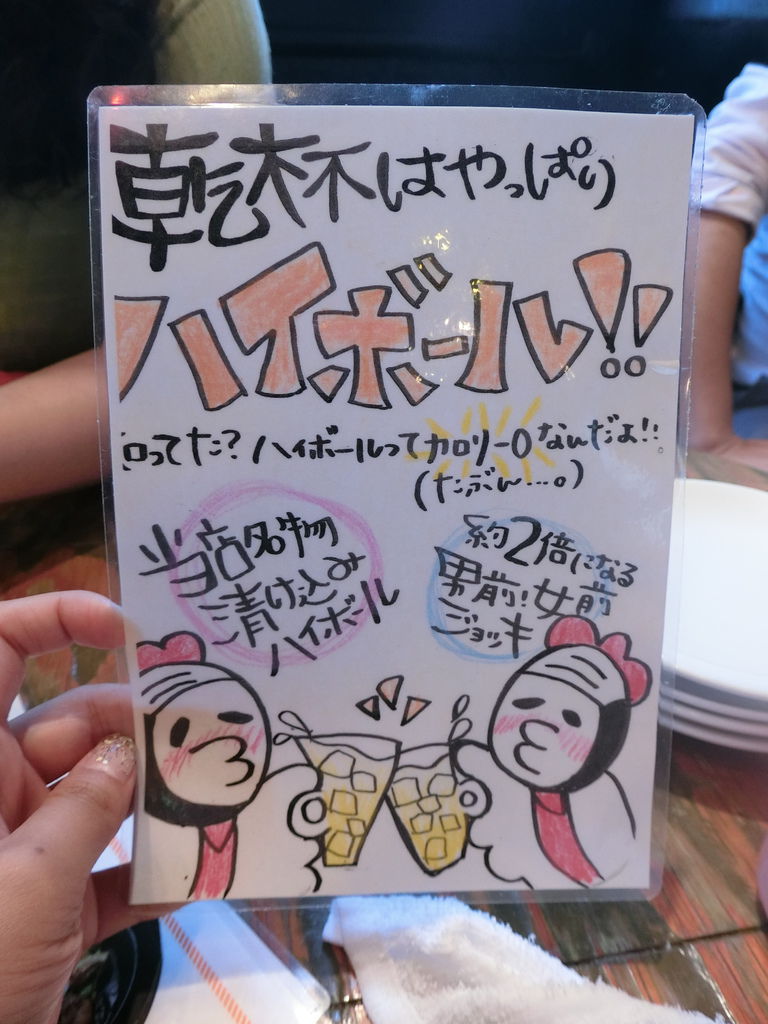 乾杯はやっぱり
ハイボール!!
ってた? ハイボールってカロリー0なんだよ!!
(たぶん…。)
当店名物
漬け込み
ハイボール
約2倍になる
男前!女前
ジョッキ